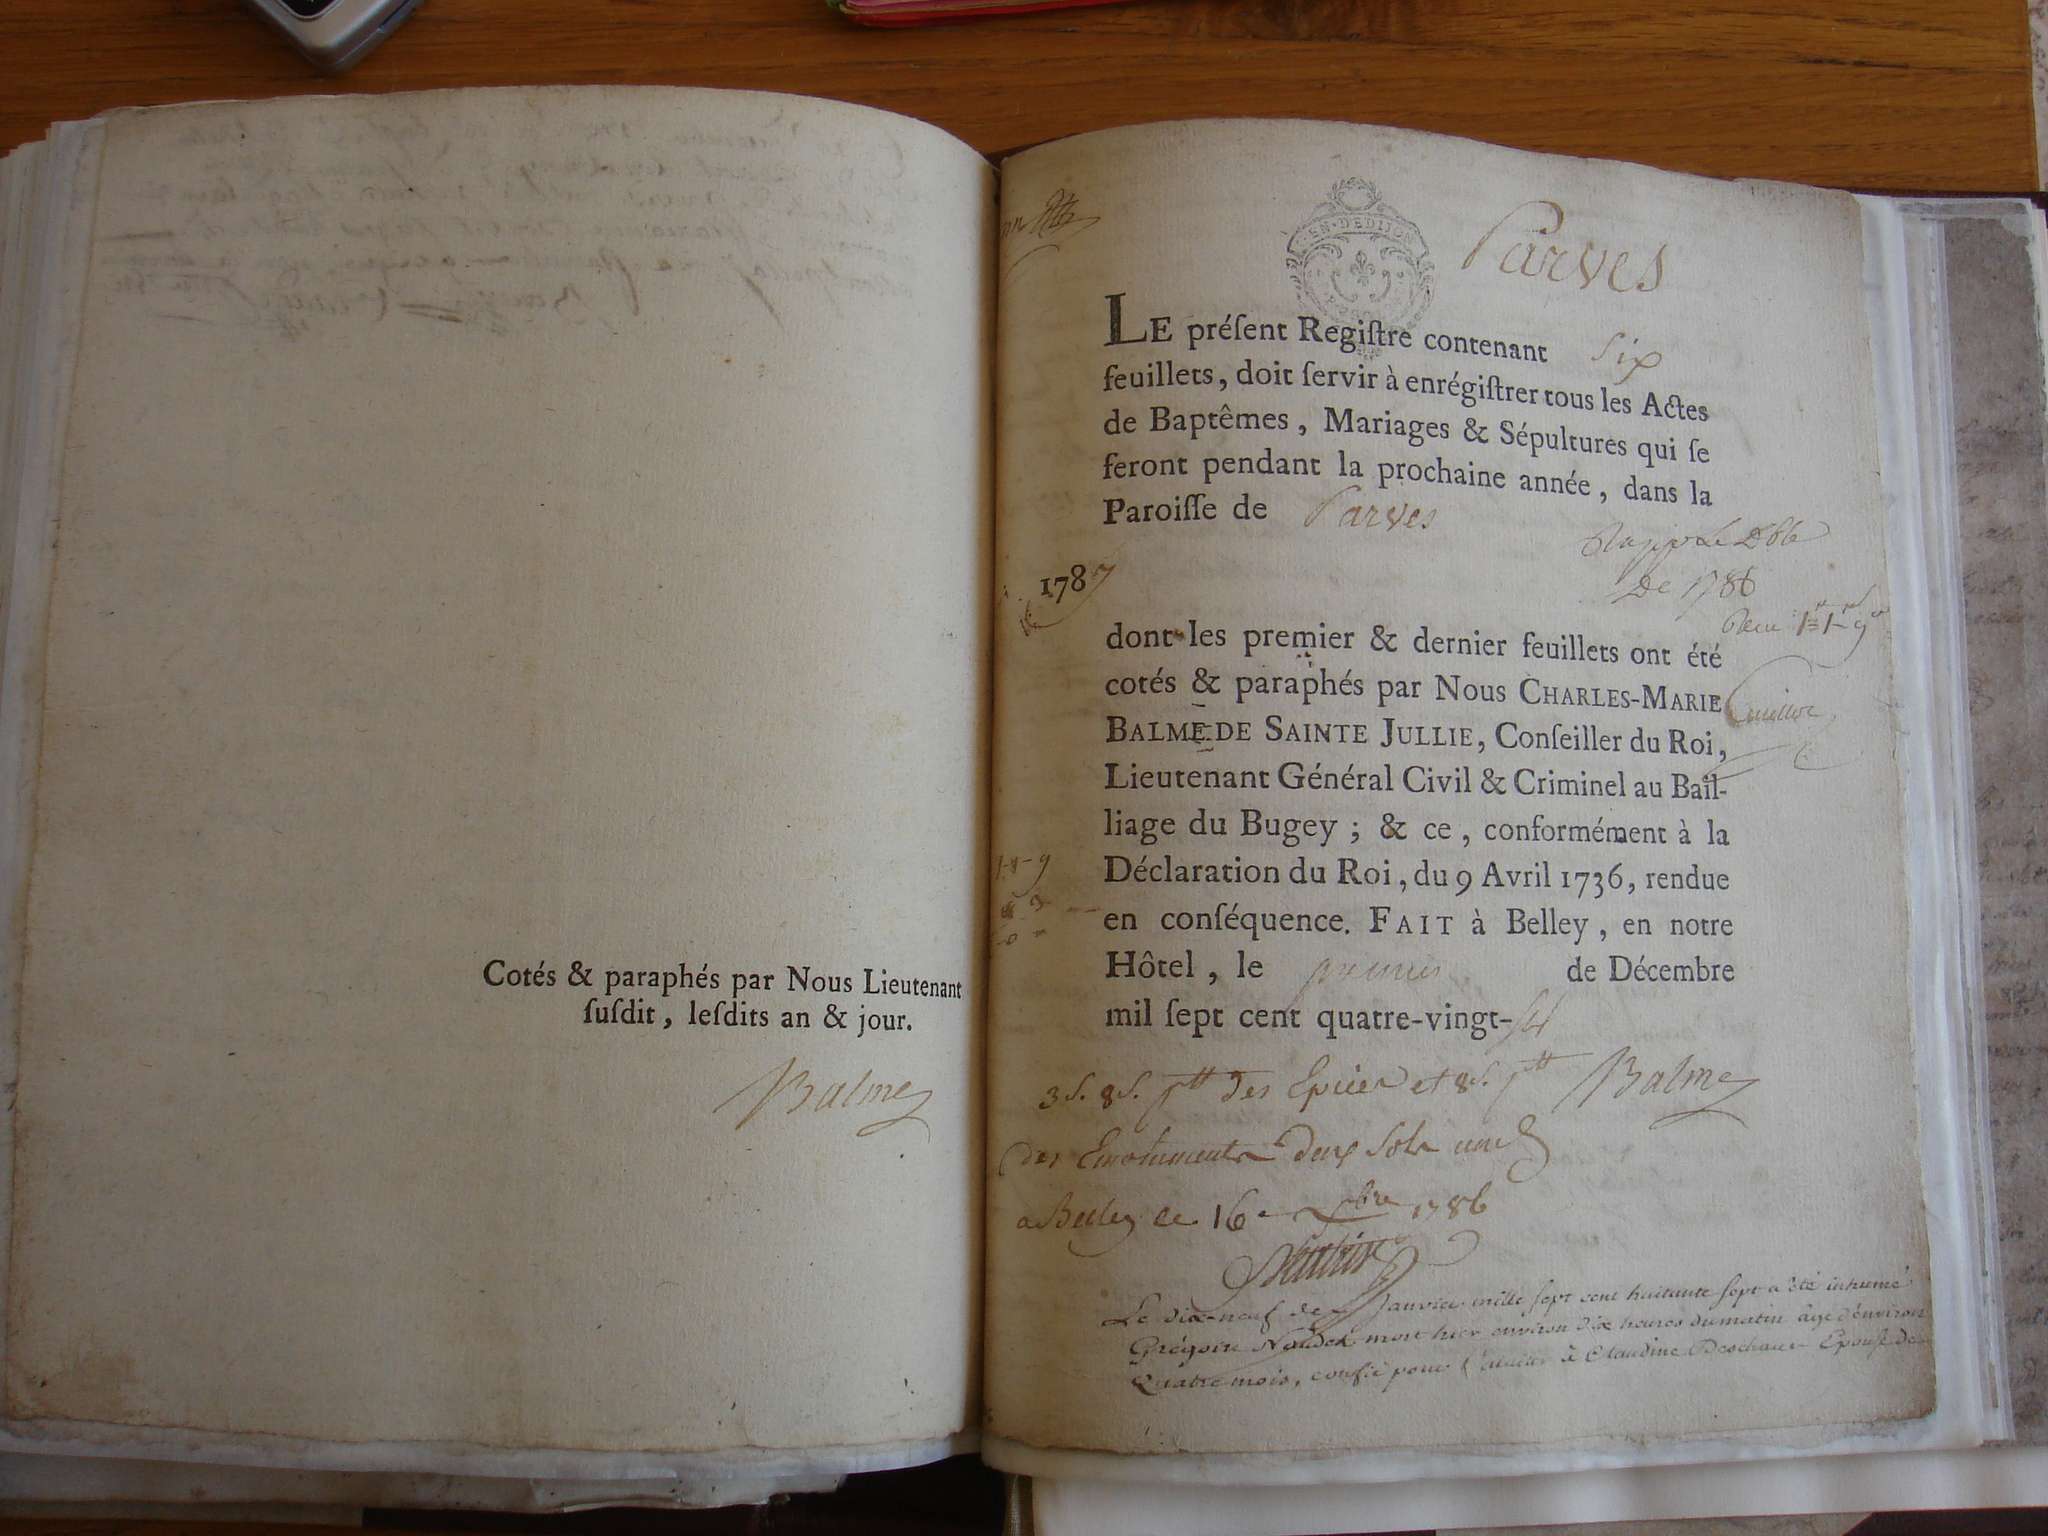 Cotés & paraphés par Nous Lieutenant
ſuſdit, leſdits an & jour.
Balme
EN·DEDIJON
Parves
LE préſent Regiſtre contenant six
feuillets, doit ſervir à enrégiſtrer tous les Actes
de Baptêmes, Mariages & Sépultures qui ſe
feront pendant la prochaine année, dans la
Paroiſſe de Parves
De 1786
1787
dont les premier & dernier feuillets ont été
cotés & paraphés par Nous CHARLES-MARIE
BALME DE SAINTE JULLIE, Conſeiller du Roi,
Lieutenant Général Civil & Criminel au Bail-
liage du Bugey; & ce, conformément à la
Déclaration du Roi, du 9 Avril 1736, rendue
en conſéquence. FAIT à Belley, en notre
Hôtel, le premier de Décembre
mil ſept cent quatre-vingt-six
3s. 8d. ptt des Epices et 8s. ptt Balme
des Emoluments deux sols
a Belley ce 16e Xbre 1786
Le dix-neuf de Janvier mille sept cent huitante sept a été inhumé
Grégoire mort hier environ dix heures du matin âgé d'environ
Quatre mois, confié pour l'alaiter à Claudine Deschaux Epouse de